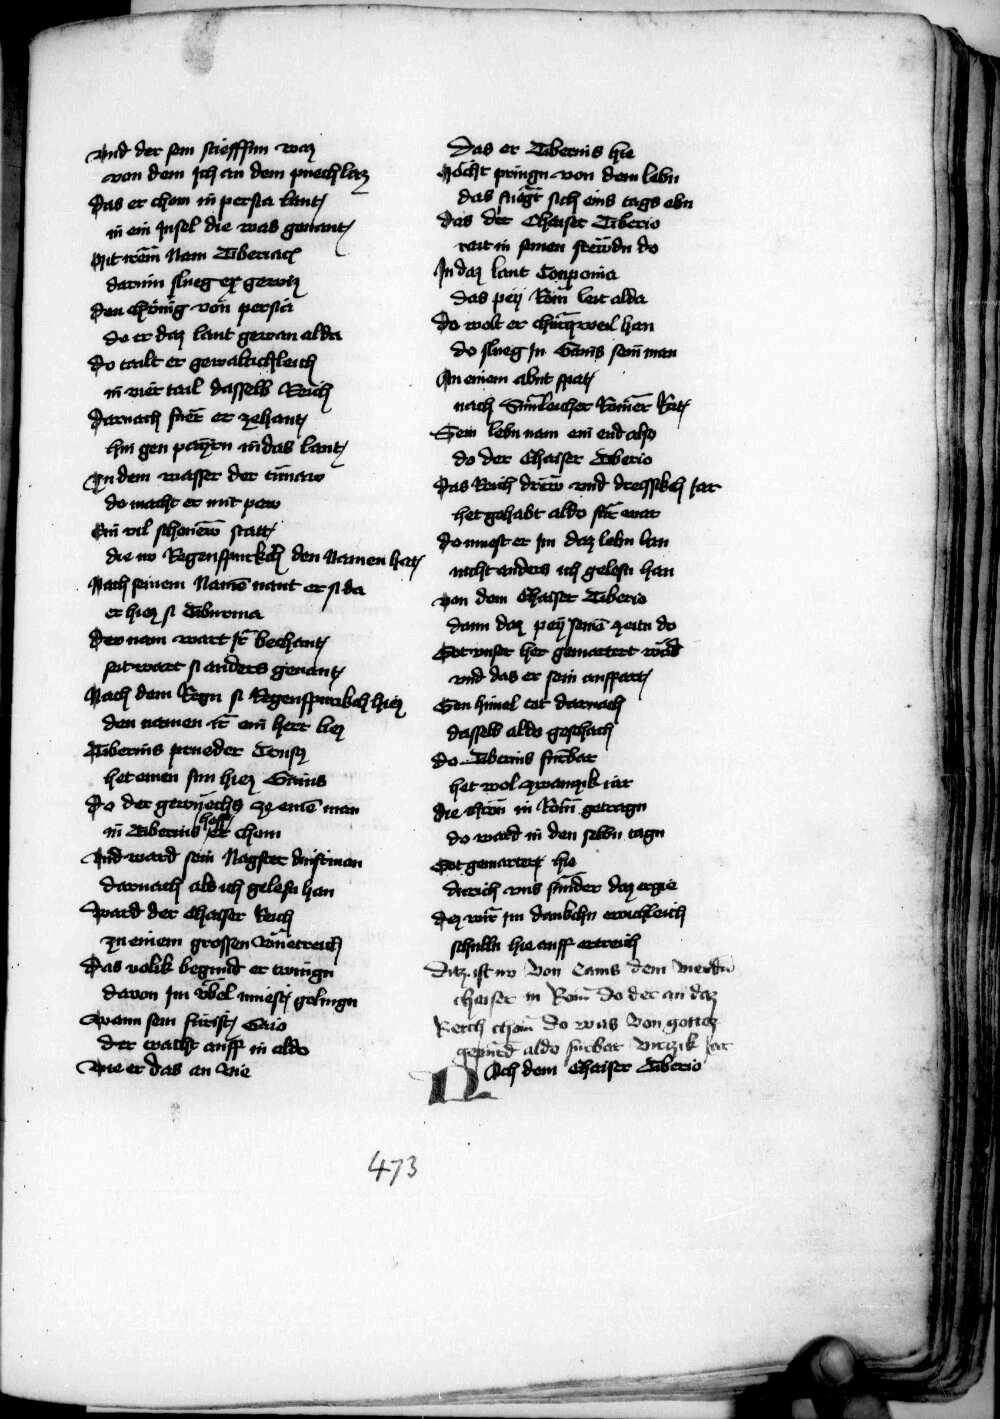 Vnd der sein stieffsun waz
von dem Ich an dem puech laz
Das er chom in persia lant
in ein Insel die was genant
Mit irem Nam Tiberiach
darum slueg er gewiz
den chönig von persia
do er daz lant gewan alda
Do tailt er gewaltichleich
in vier tail dasselb Reich
Darnach fuer er zehant
hin gen payrn in das lant
In dem wasser der tunaw
do macht er mit paw
Ein vil schonew statt
die nw Regenspurkch den Namen hat
Nach seinem Namen nant er si da
er hiez si Tiburnia
Der nam wart ir bechant
seit wart si anders genant
Nach dem Regn si Regenspurkch hiez
den namen ir ein herr liez
Tiberius prueder
het einen sun hiez Gaius
Do der gewuechs ze einem man
in Tiberius hoff er chom
Vnd ward sein Nagster dinstman
darnach als ich gelesn han
Ward der Chaiser Reich
zu einem grossen wuetreich
Das volik begund er twingn
davon Im vbel muest gelingn
Wann sein furist Gaio
der tracht auff in aldo
Wie er das an vie
Das er Tiberius hie
Möcht pringn von dem lebn
das fuegt sich eins tags ebn
das der Chaiser Tiberio
rait in seinen frewdn do
In daz lant Conponia
das pey Rom leit alda
Do wolt er churczweil han
do slueg In Gaius sein man
An einem abnt spat
nach Römer Rat
Sein lebn nam ein end also
do der Chaiser Tiberio
Das Reich drew vnd dreissikch Jar
het gehabt aldo fur war
Do muest er Im daz lebn lan
nicht anders ich gelesn han
von dem Chaiser Tiberio
dann daz pey seinen zeitn do
Got vnser her gemartert ward
vnd das er sein auffart
Gen himel tet darnach
dasselb aldo geschach
do Tiberius furbar
het wol zwanzik iar
die chron in Rom getragn
do ward in den selbn tagn
Got gemartert hie
durich vns sunder daz ergie
dez wir im dankchn ewichleich
schulln hie auff ertreich
Ditz ist nw Von Caius dem vierdn
chaiser in Rom do der an daz
Reich chom do was Von gottez
gepurd aldo furbar virtzik Jar
Nach dem Chaiser Tiberio
473